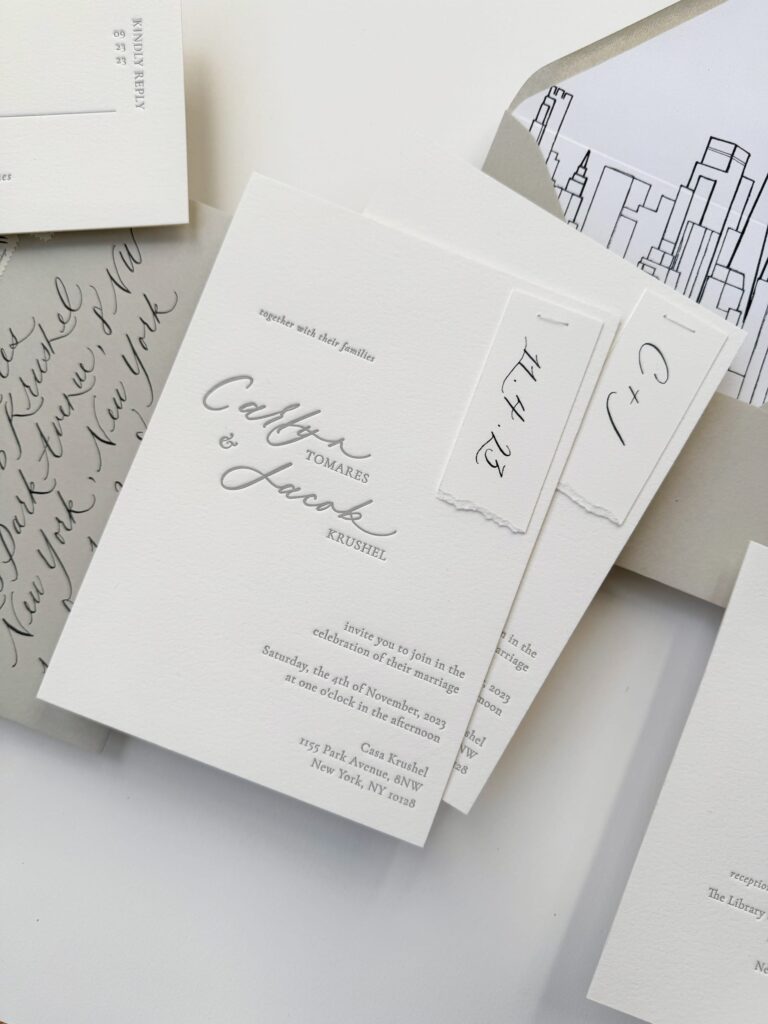 KINDLY REPLY
09
23
23
together with their families
Caitlyn
TOMARES
&
Jacob
KRUSHEL
invite you to join in the
celebration of their marriage
Saturday, the 4th of November, 2023
at one o'clock in the afternoon
Casa Krushel
1155 Park Avenue, 8NW
New York, NY 10128
11.4.23
C + J
in the
marriage
2023
NW
Krushel
Park Avenue, 8 NW
New York, New York
The Library